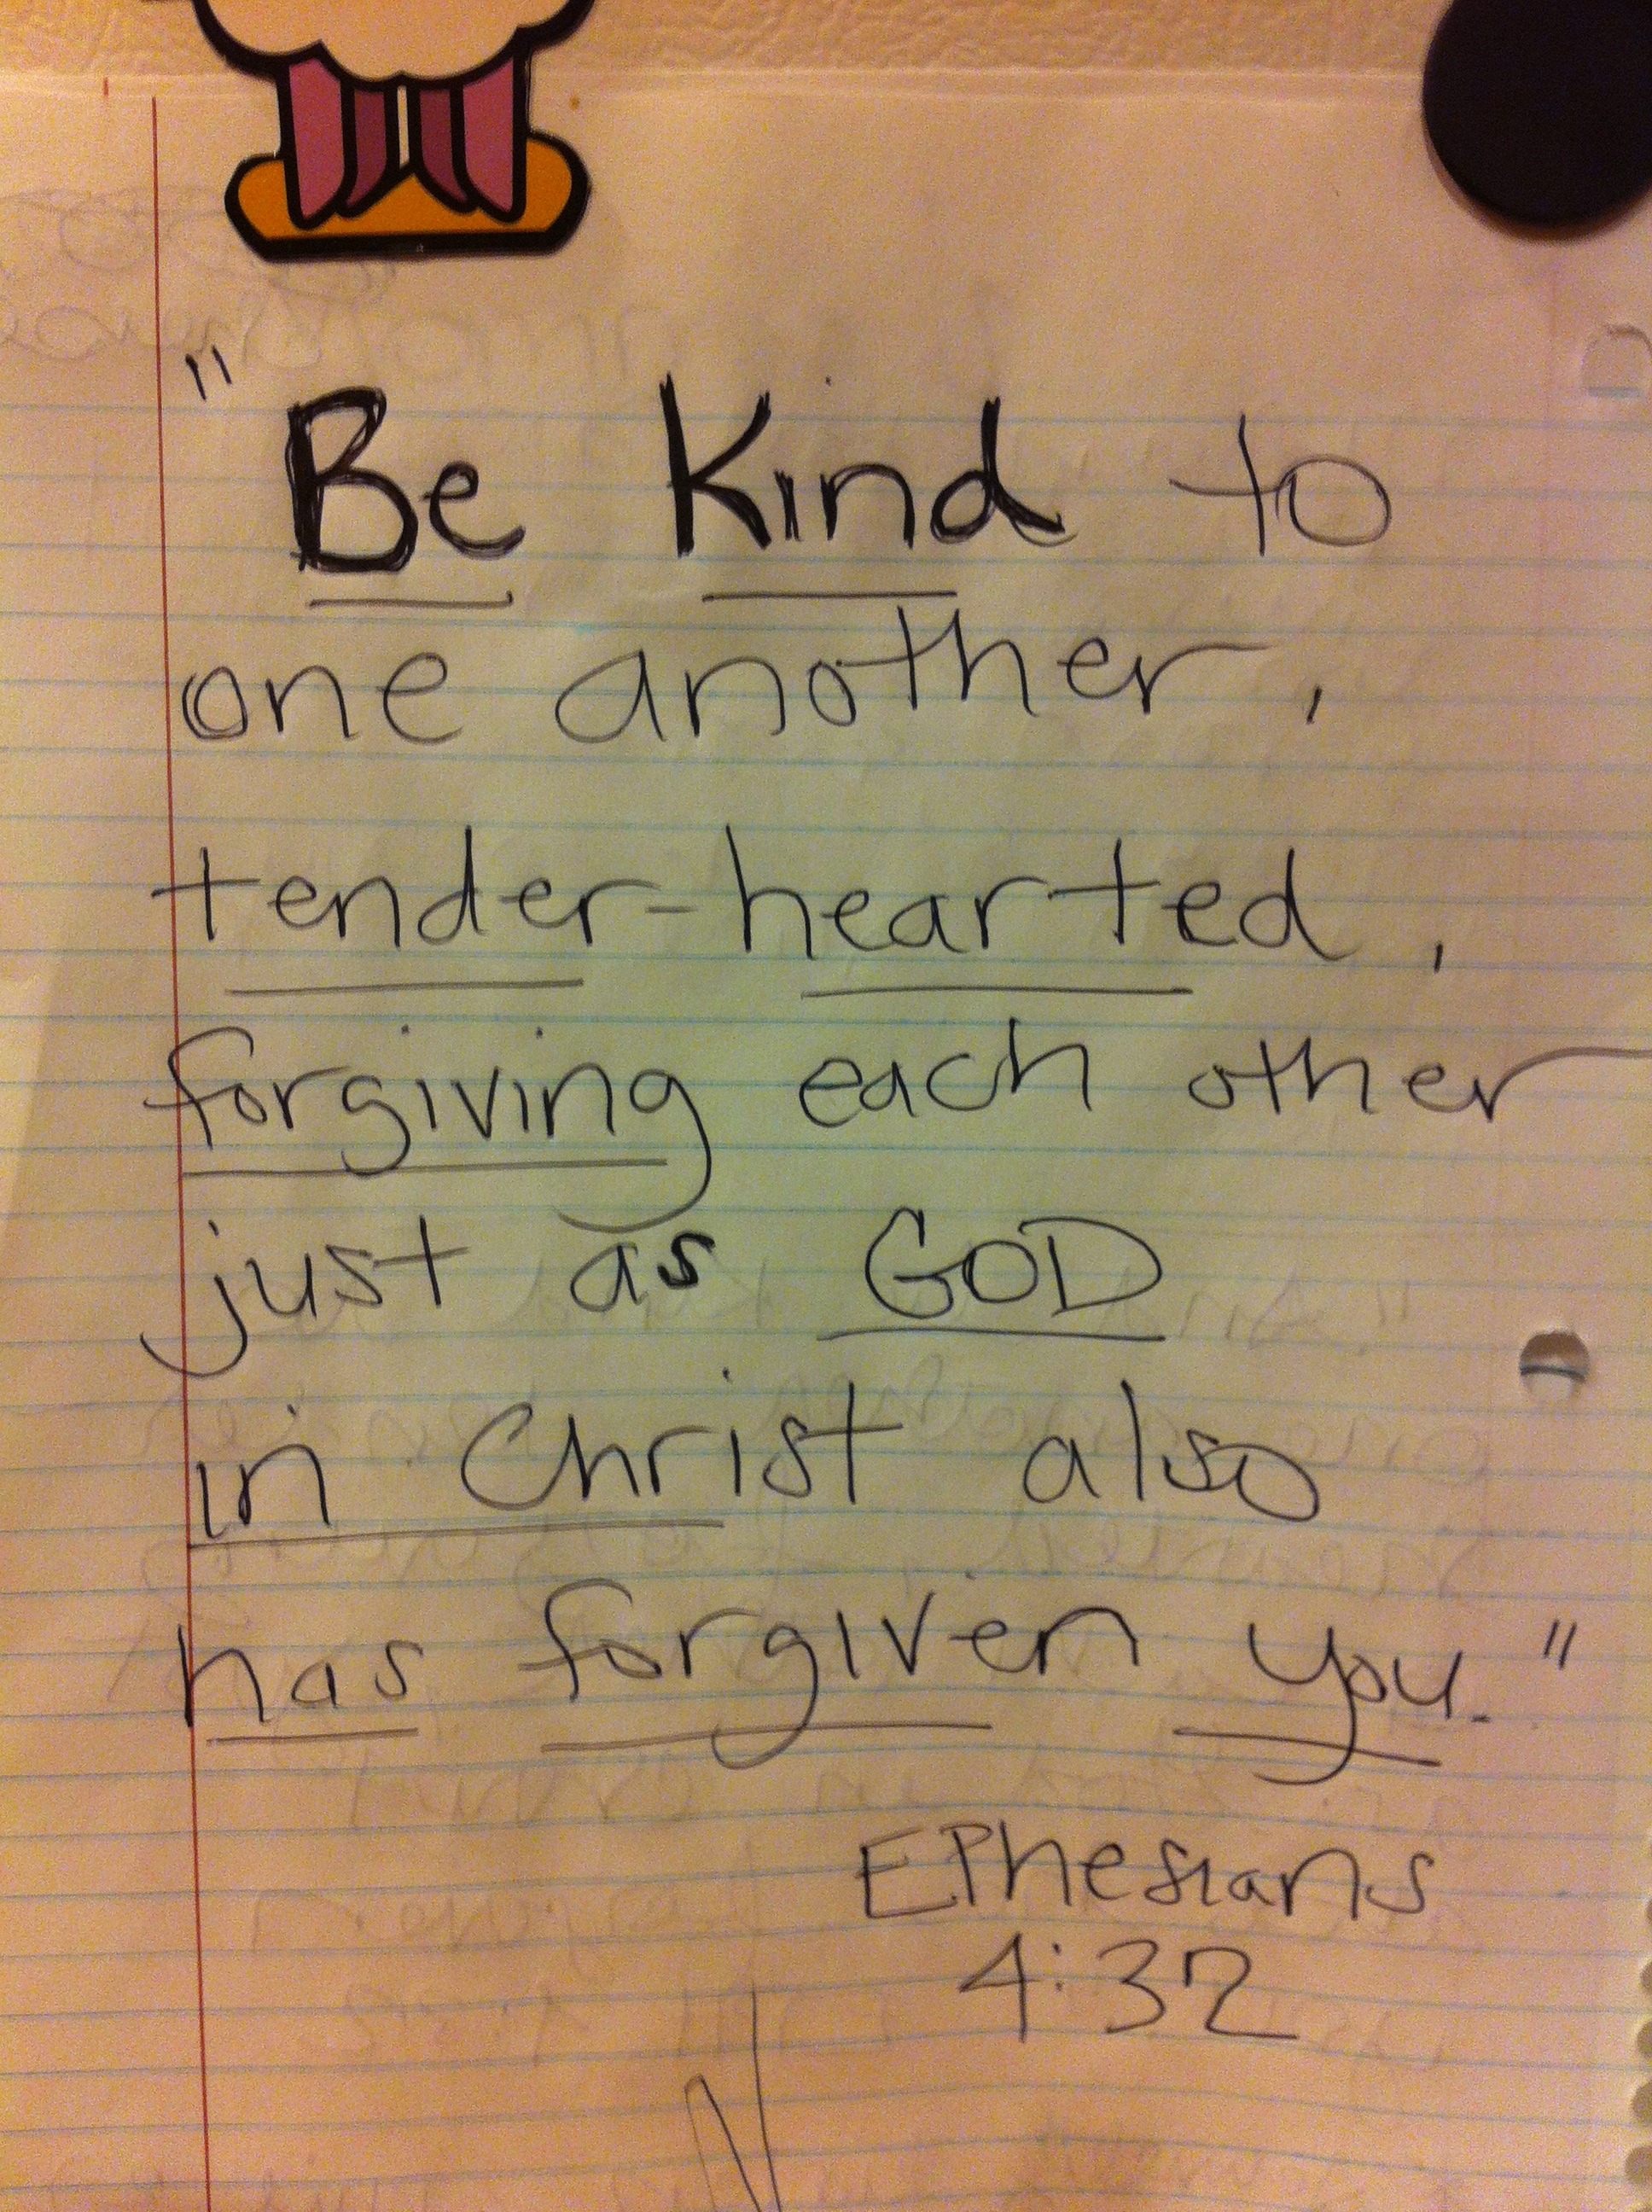 "Be Kind to
one another,
tender-hearted,
forgiving each other
just as GOD
in Christ also
has forgiven you."
EPhesians
4:32